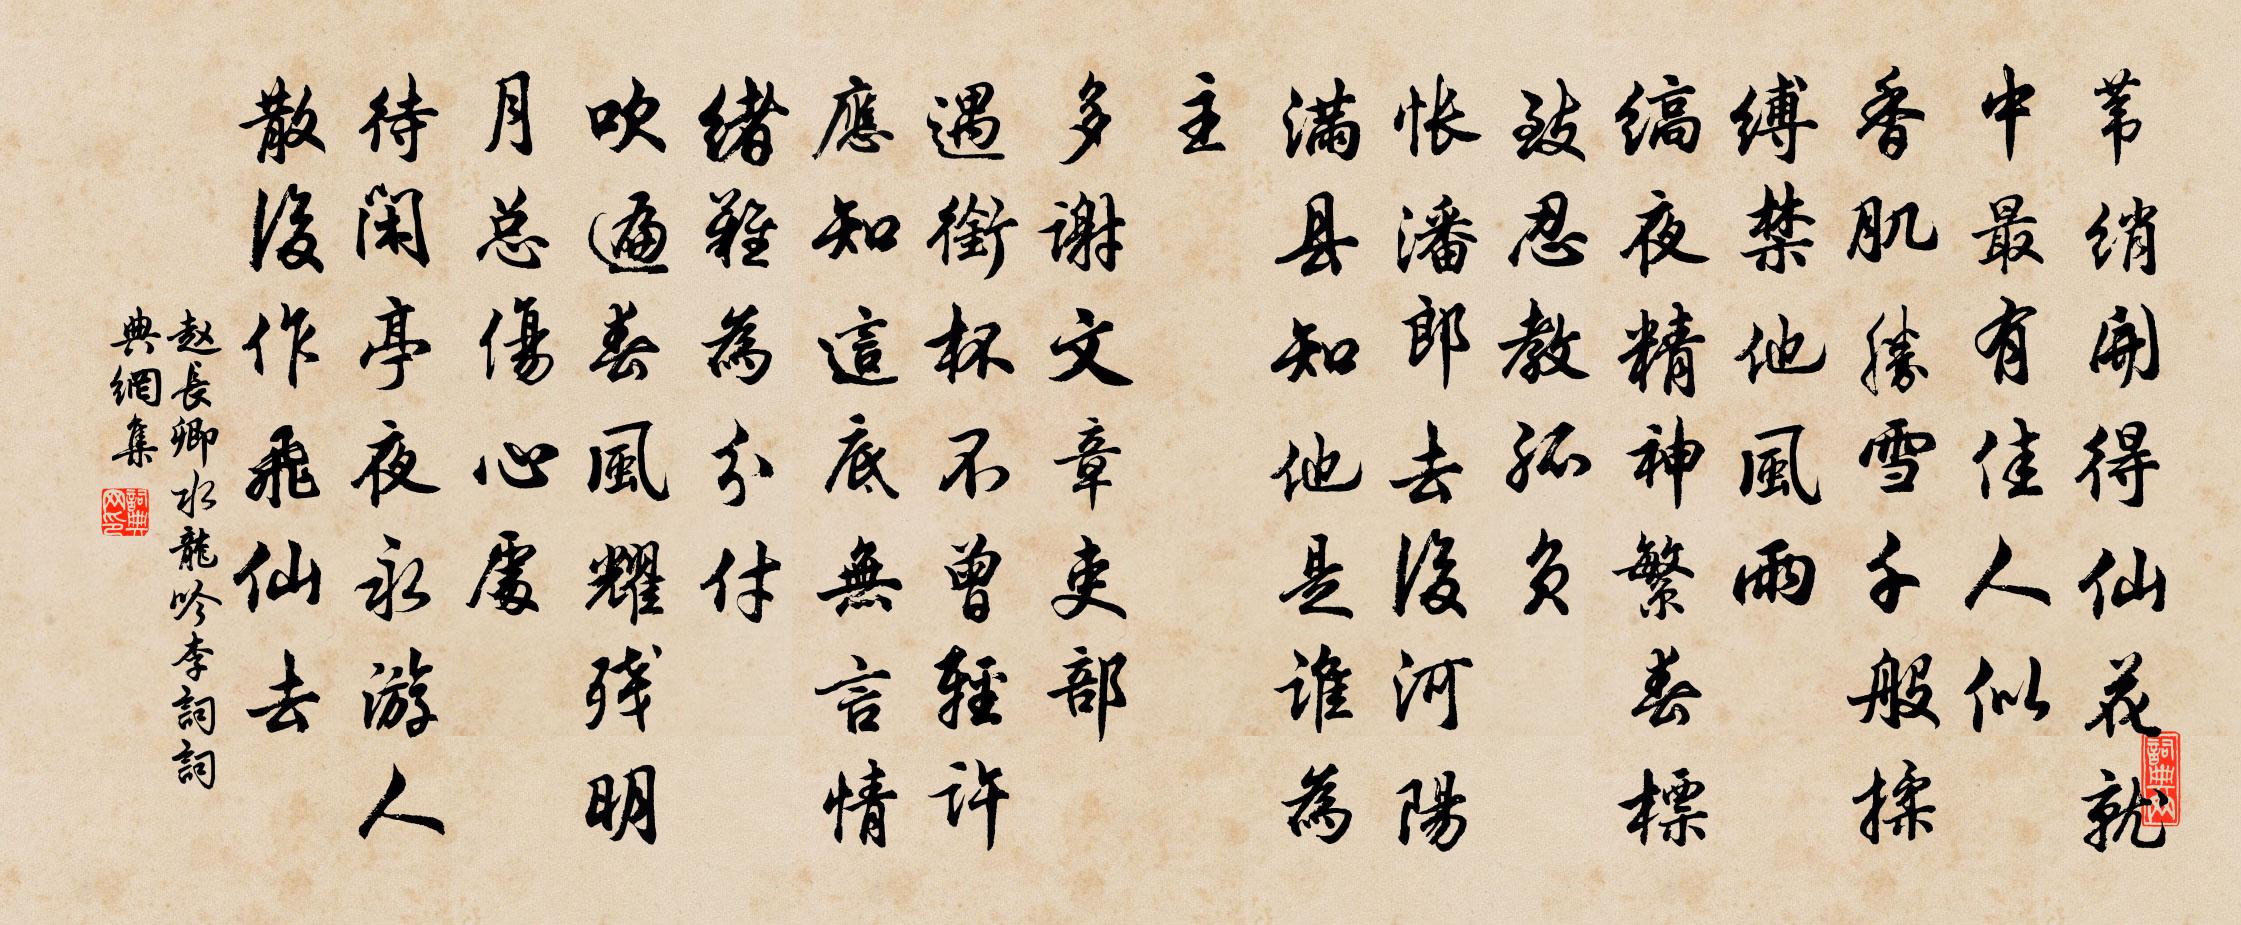 苇绡開得仙花就
中最有佳人似
香肌勝雪千般揉
缚禁他風雨
缟夜精神繁春標
致忍教孤负
怅潘郎去後河陽
满县知他是谁為
主
多谢文章吏部
遇銜杯不曾輕許
應知這底無言情
绪難為分付
吹遍春風耀残明
月总傷心處
待闲亭夜永游人
散後作飛仙去
赵長卿水龍吟李詞詞
典網集
詞典网
詞典网印